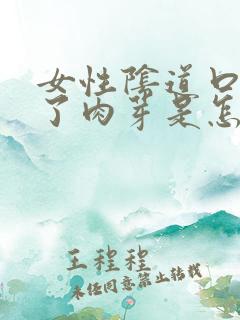 女性陰道口
了肉芽是怎
王程程
未经同意禁止转载